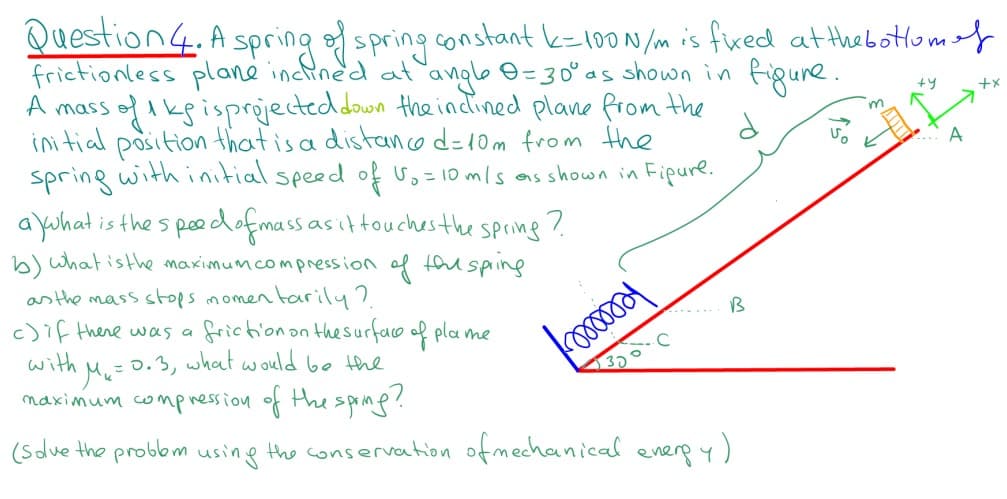 Question 4. A spring of spring constant k=100 N/m is fixed at the bottom of
frictionless plane inclined at angle θ=30° as shown in figure.
A mass of 1 kg is projected down the inclined plane from the
initial position that is a distance d=10m from the
spring with initial speed of v₀ = 10 m/s as shown in Figure.
a) what is the speed of mass as it touches the spring?
b) what is the maximum compression of the spring
as the mass stops momentarily?
c) if there was a friction on the surface of plane
with μₖ = 0.3, what would be the
maximum compression of the spring?
(Solve the problem using the conservation of mechanical energy)
+y
+x
m
v₀
A
d
B
C
30°